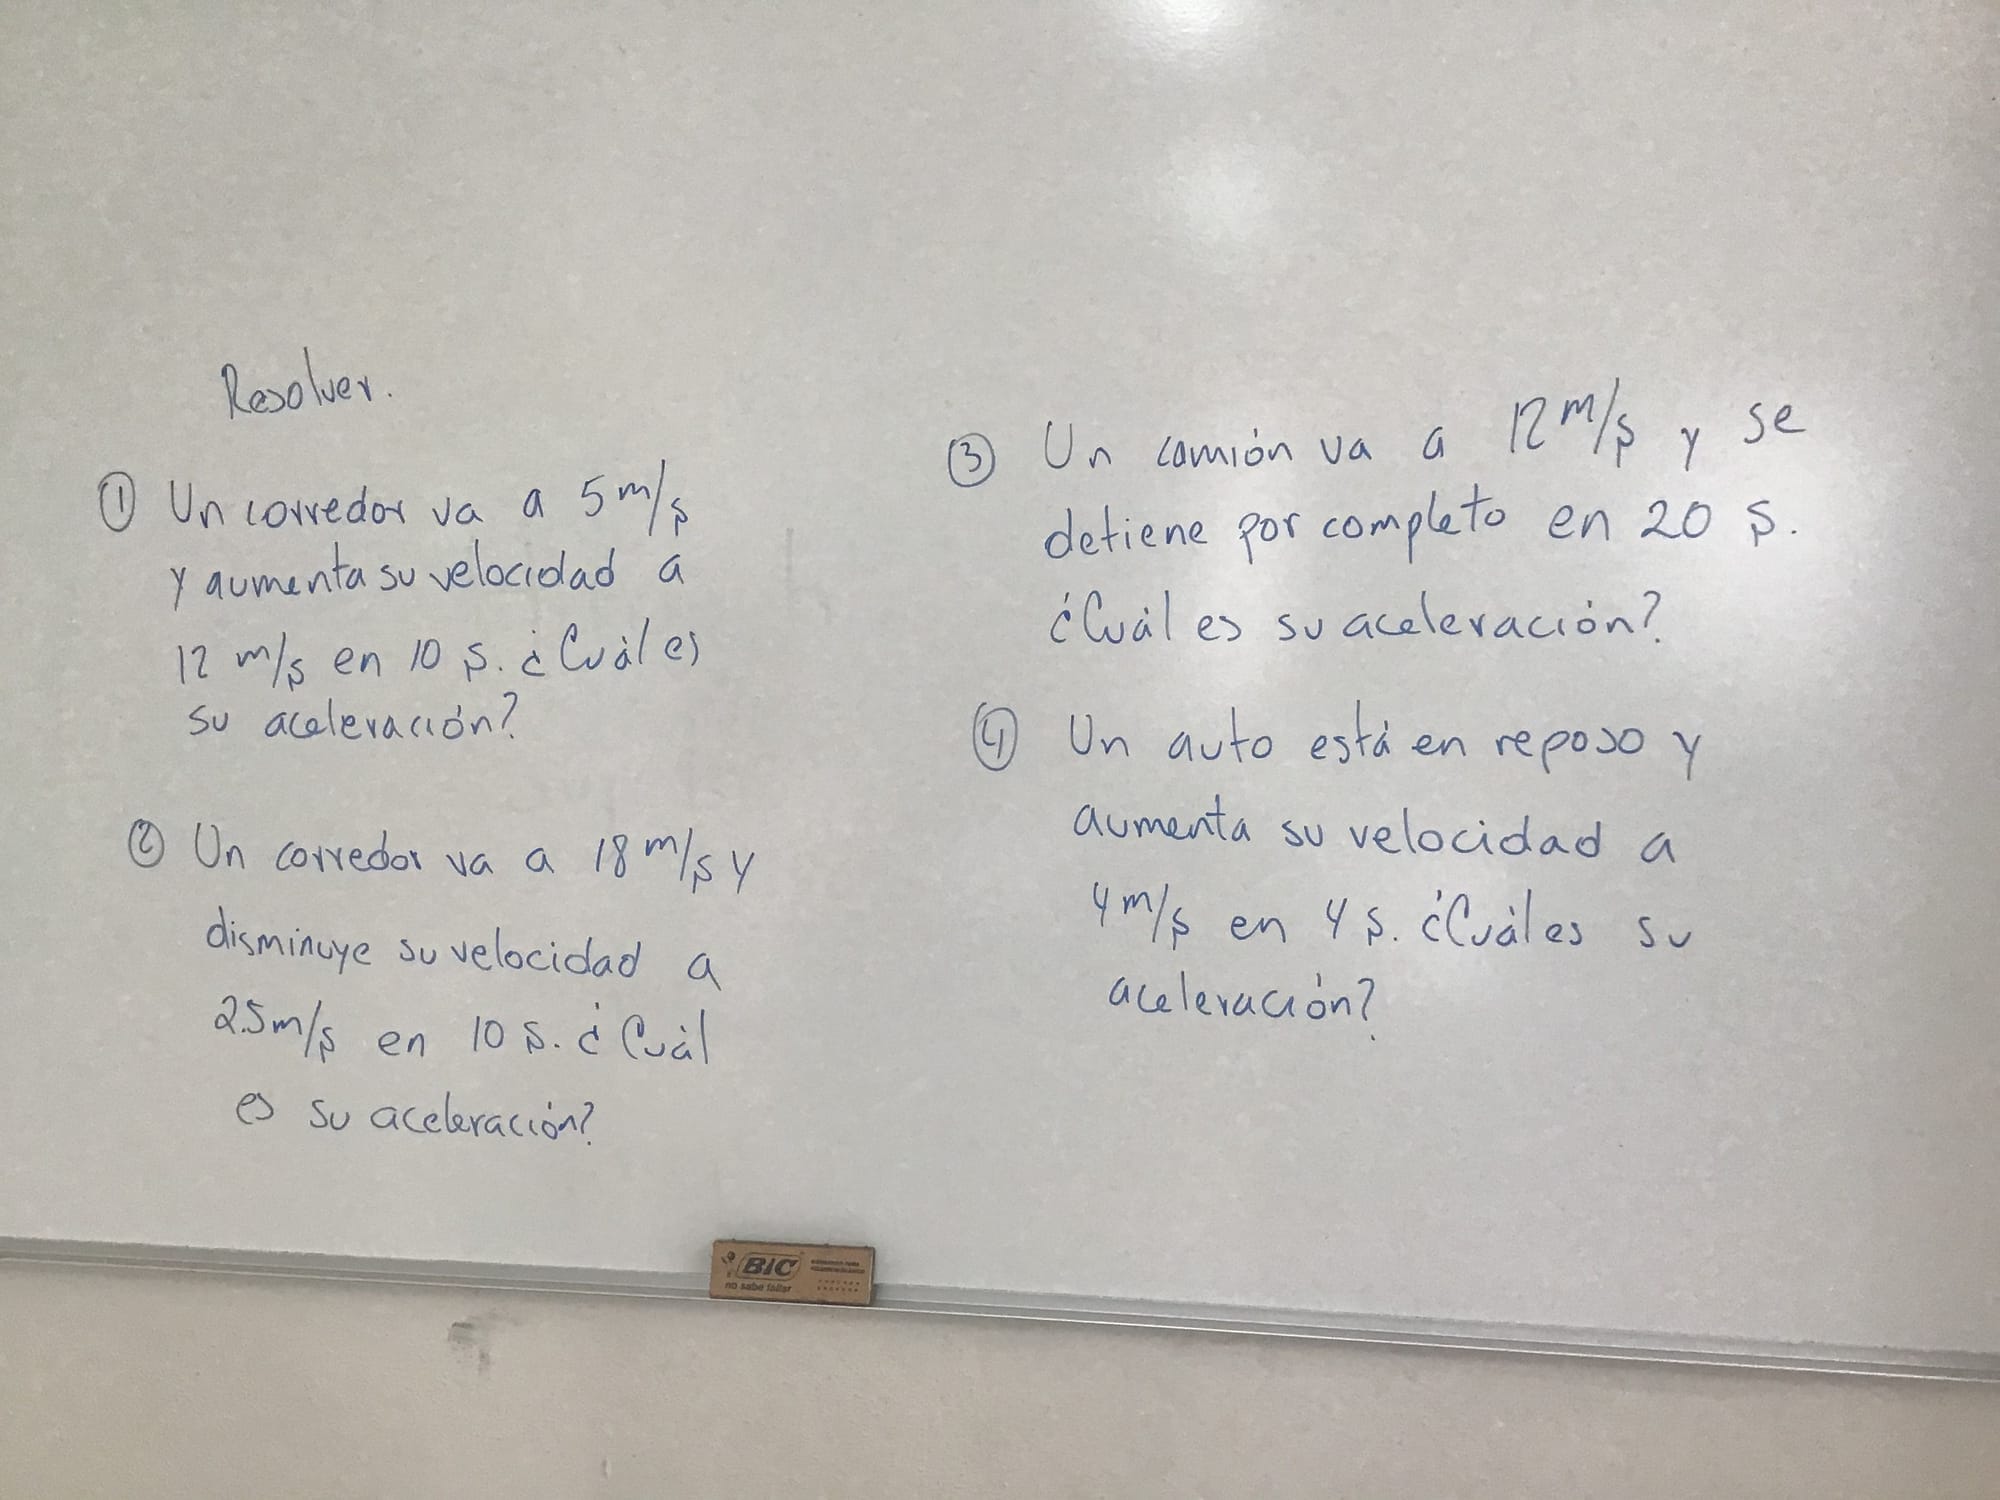 Resolver.
① Un corredor va a 5 m/s
y aumenta su velocidad a
12 m/s en 10 s. ¿Cuál es
su aceleración?
② Un corredor va a 18 m/s y
disminuye su velocidad a
2.5 m/s en 10 s. ¿Cuál
es su aceleración?
③ Un camión va a 12 m/s y se
detiene por completo en 20 s.
¿Cuál es su aceleración?
④ Un auto está en reposo y
aumenta su velocidad a
4 m/s en 4 s. ¿Cuál es su
aceleración?
BIC
no sabe fallar